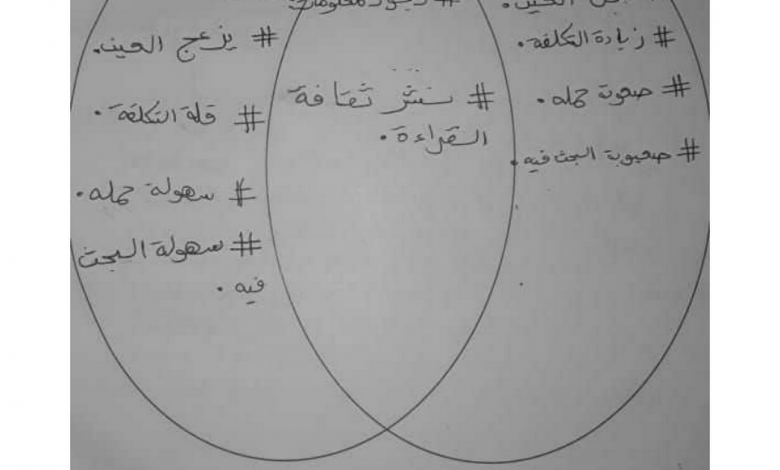 العين.
# زيادة التكلفة.
# صعوبة حمله.
# صعوبة البحث فيه.
# وجود معلومات
# نشر ثقافة
القراءة.
# يزعج العين.
# قلة التكلفة.
# سهولة حمله.
# سهولة البحث
فيه.